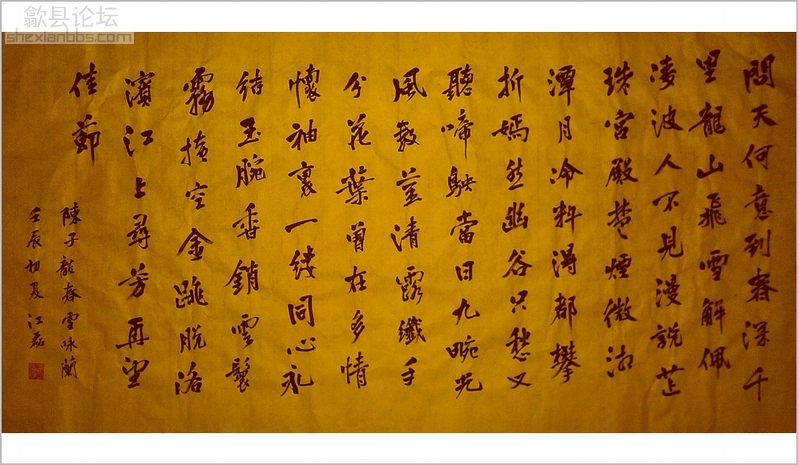 歙县论坛
shexianbbs.com
問天何意到春深千
里龍山飛雪解佩
凌波人不見漫說芷
珠宮殿楚煙微湘
潭月冷料得都攀
折嫣然幽谷只愁又
聽啼鴃當日九畹光
風數莖清露纖手
分花葉曾在多情
懷袖裏一縷同心
結玉腕香銷雲鬟
霧掩空金跳脫洛
濱江上尋芳再望
佳節
陳子龍春雪咏蘭
壬辰初夏江